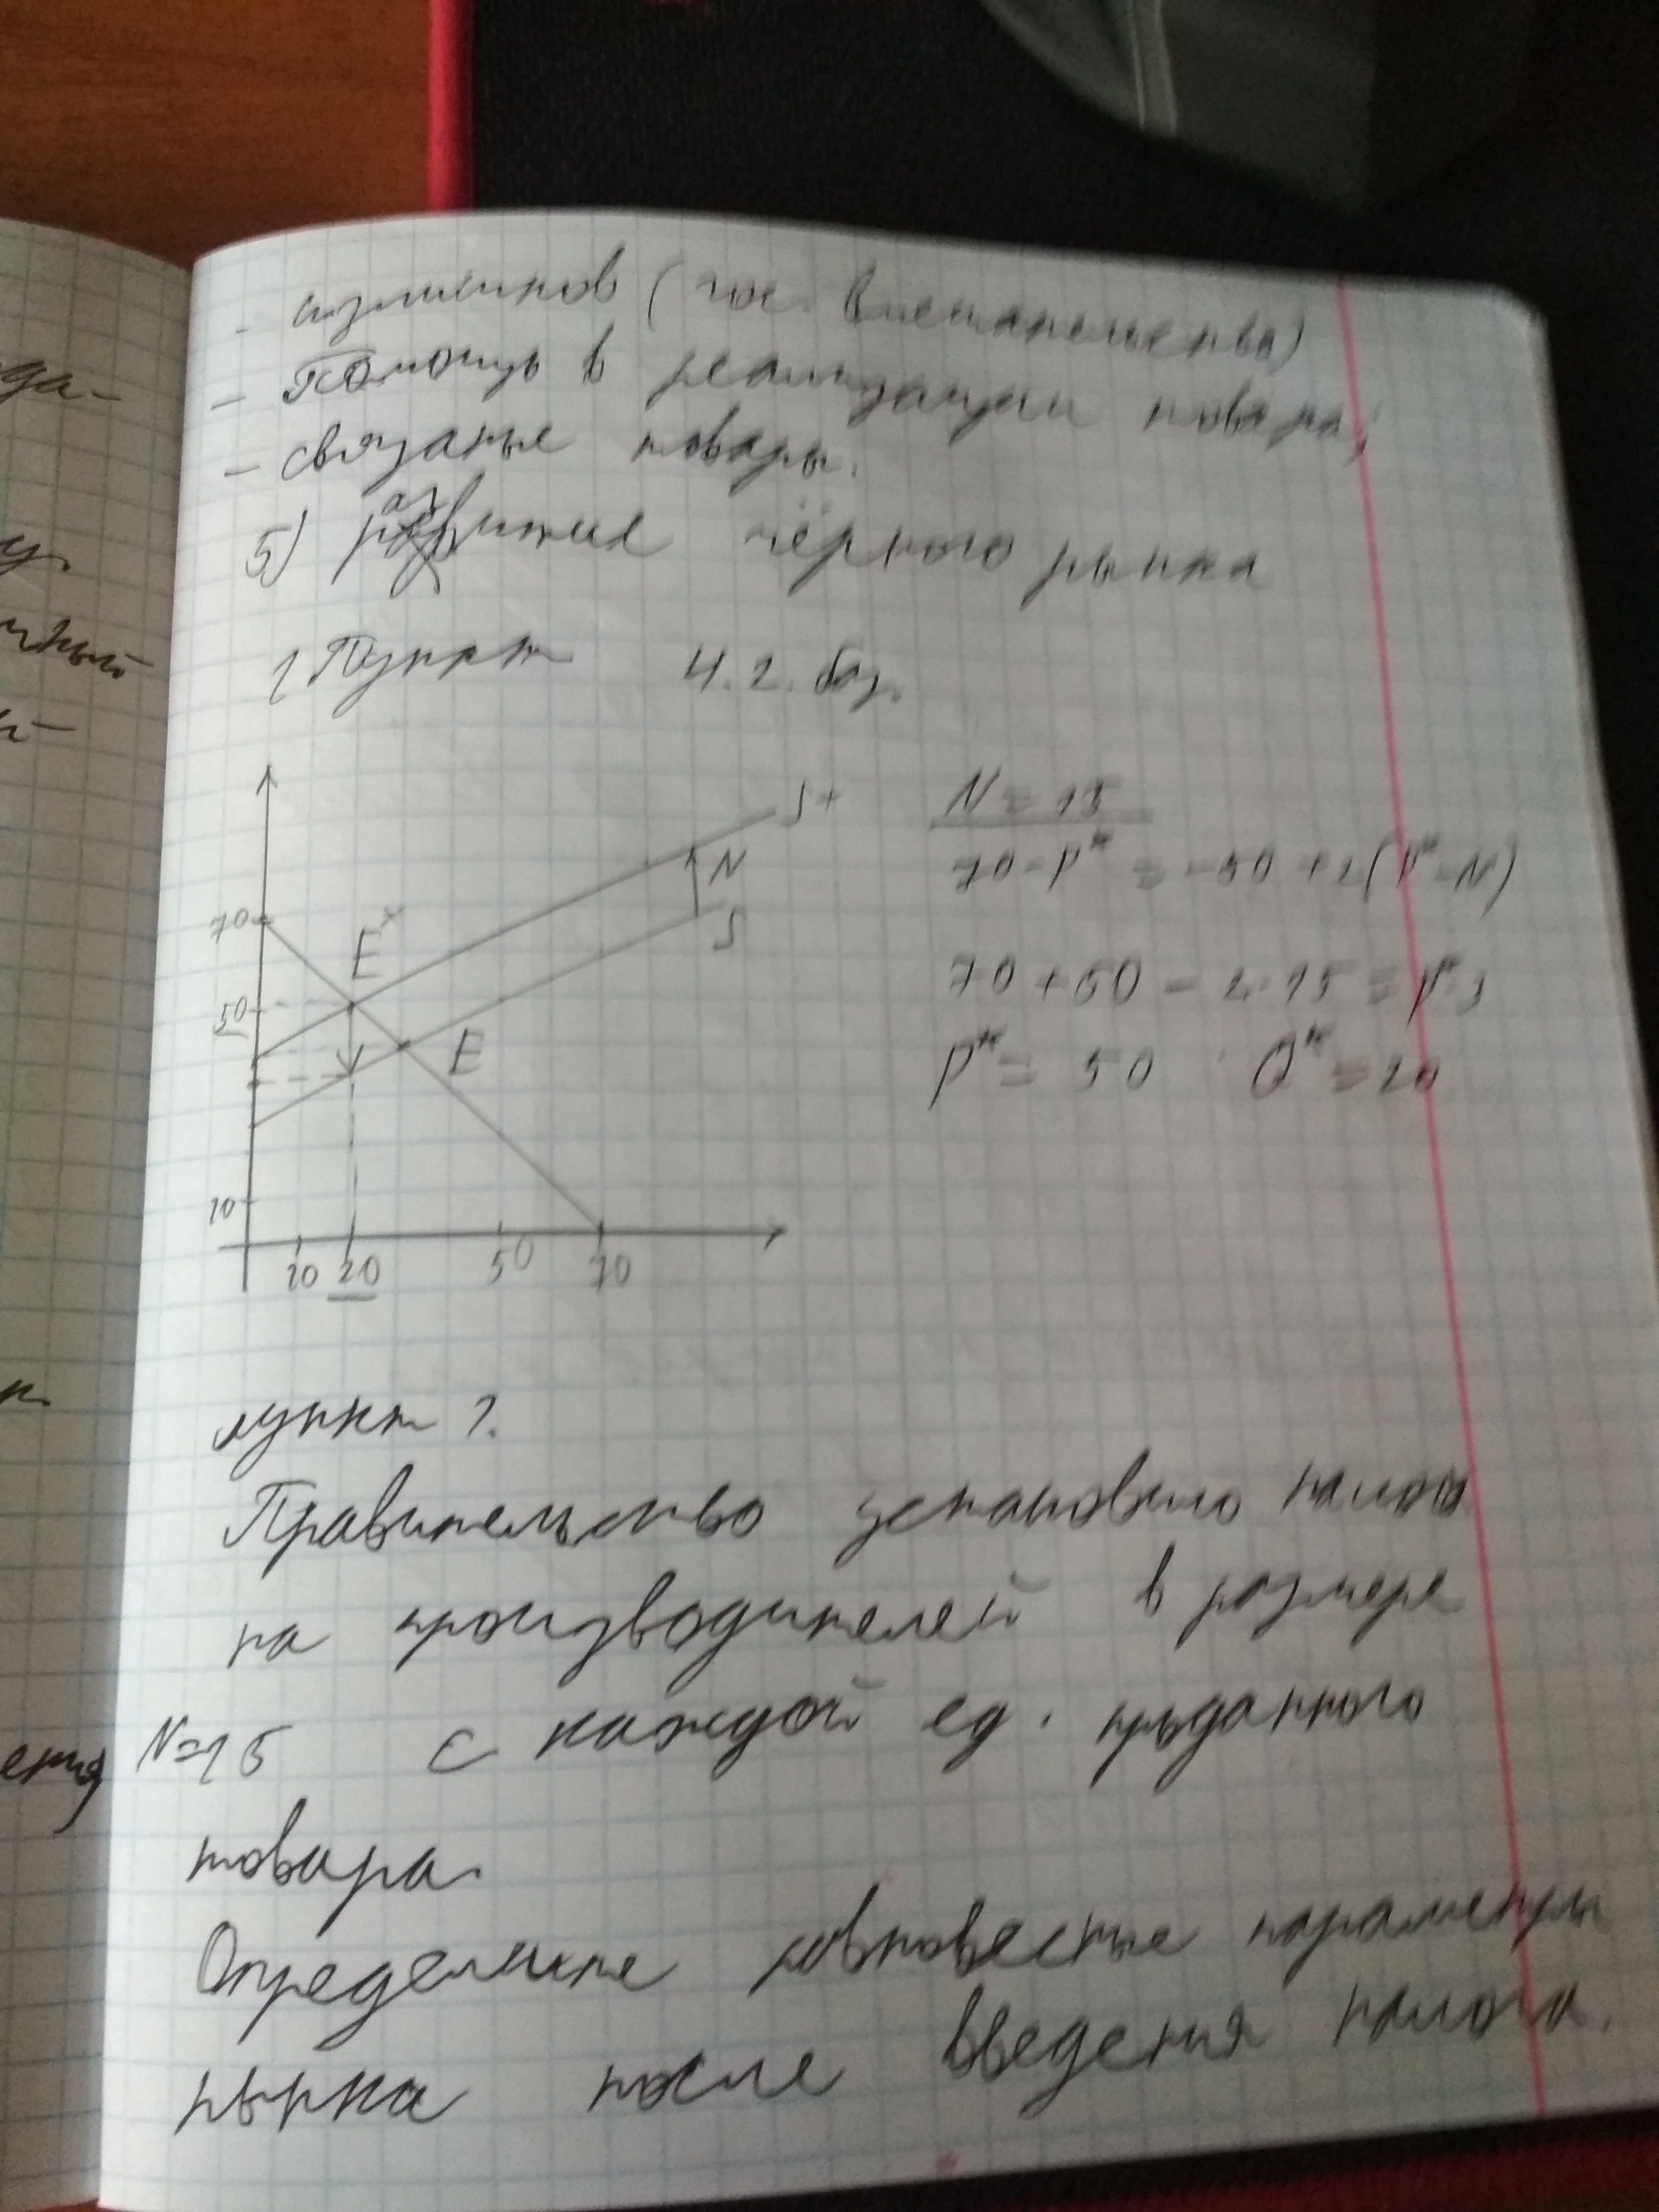 да-
- излишков (гос. вмешательства)
- Помощь в реализации товара;
- связаные товары.
5) развитие чёрного рынка
1 Пункт 4.2. баз.
S+
N
S
70
E*
50
E
10
10 20 50 70
N = 15
70-P* = -50 + 2(P*-N)
70+50 - 2·15 = P*3
P* = 50 Q* = 20
пункт 1.
Правительство установило налог
на производителей в размере
N=15 с каждой ед. проданного
товара.
Определите равновесные параметры
рынка после введения налога.